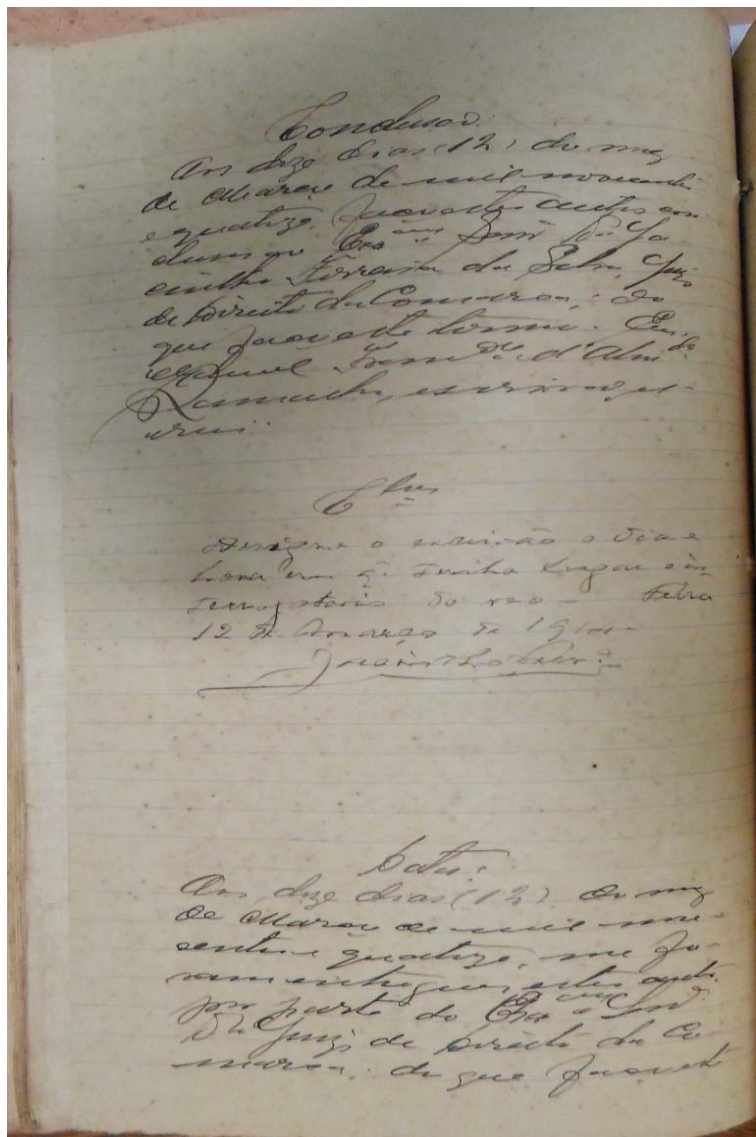 Conclusaõ.
Aos doze dias (12) do mez
de Março de mil novecentos
e quatorze, faço estes autos con-
clusos ao Exᵐᵒ Senr Dr Ja-
cintho Ferreira da Silva, Juiz
de Direito da Comarca; do
que faço este termo. Eu,
Manuel d'Almdᵃ
Camacho, escrivão, es-
crevi.
Clsos
Designe o escrivão o dia e
hora em q. tenha lugar o in-
terrogatorio do reo — Feira
12 de Março de 1914 —
Jacintho Ferrᵃ
Data:
Aos doze dias (12) do mez
de Março de mil nove-
centos e quatorze, me fo-
ram entregues estes autos
por parte do Exᵐᵒ Snr
Dr Juiz de Direito da Co-
marca; do que faço este